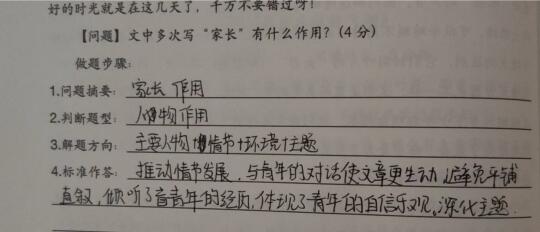 好的时光就是在这几天了，千万不要错过呀！
【问题】文中多次写“家长”有什么作用？（4 分）
做题步骤：
1.问题摘要：家长 作用
2.判断题型：人物作用
3.解题方向：主要人物+情节+环境+主题
4.标准作答：推动情节发展，与青年的对话使文章更生动，避免平铺
直叙，倾听了青年的经历，体现了青年的自信乐观，深化主题.